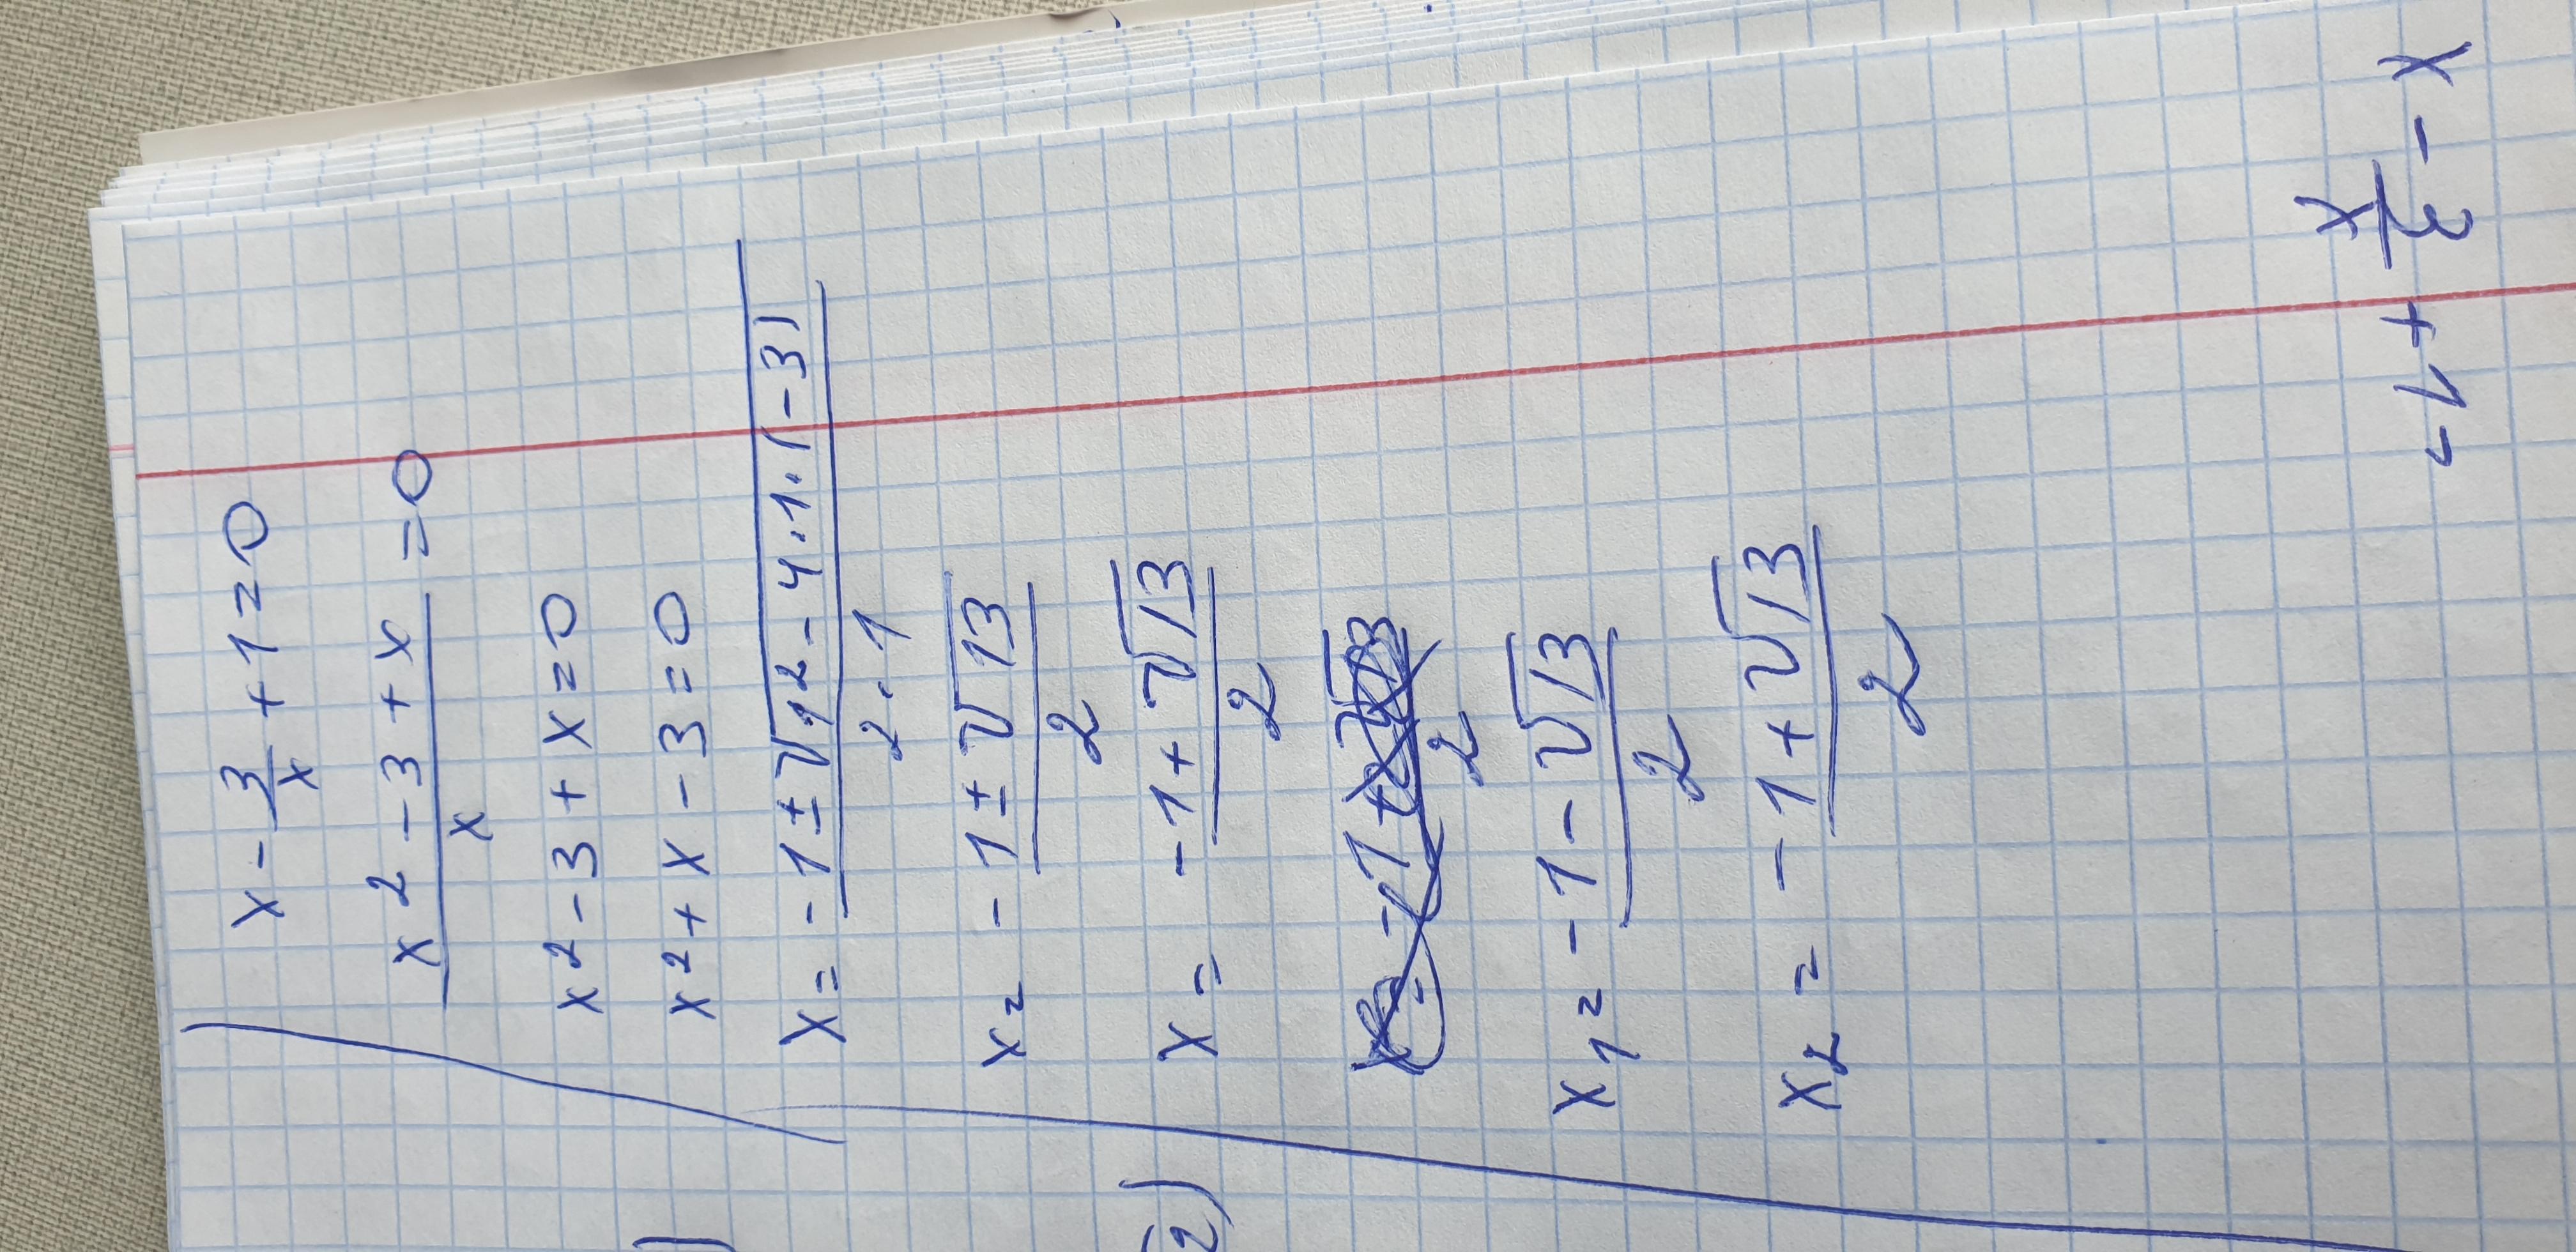 x - 3/x + 1 = 0
(x² - 3 + x)/x = 0
x² - 3 + x = 0
x² + x - 3 = 0
x = (-1 ± √(1² - 4·1·(-3)))/(2·1)
x = (-1 ± √13)/2
x = (-1 + √13)/2
x₁ = (-1 - √13)/2
x₂ = (-1 + √13)/2
x - 3/x + 1 =
2)